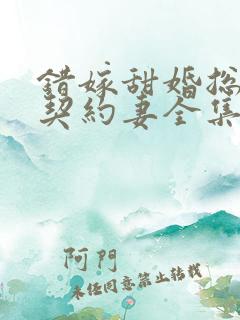 錯嫁甜婚总
契約妻全集
阿門
未经同意禁止转载